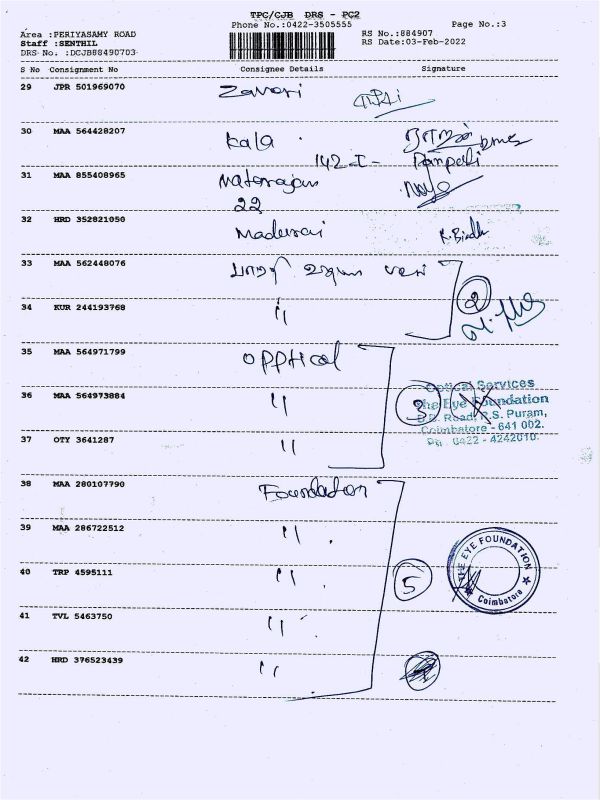 TPC/CJB DRS - PC2
Phone No.:0422-3505555 Page No.:3
Area :PERIYASAMY ROAD RS No.:884907
Staff :SENTHIL RS Date:03-Feb-2022
DRS No. :DCJB88490703
S No Consignment No Consignee Details Signature
29 JPR 501969070 Zaveri
30 MAA 564428207 Kala
142-I-
31 MAA 855408965 Natarajan
22
32 HRD 352821050 Madurai K. Bindh
33 MAA 562448076
2
34 KUR 244193768 "
35 MAA 564971799 OPPtical
36 MAA 564973884 " 3
Optical Services
The Eye Foundation
D.B. Road, R.S. Puram,
Coimbatore - 641 002.
Ph : 0422 - 4242010.
37 OTY 3641287 "
38 MAA 280107790 Foundation
39 MAA 286722512 " .
40 TRP 4595111 " . 5
THE EYE FOUNDATION
Coimbatore
41 TVL 5463750 "
42 HRD 376523439 "